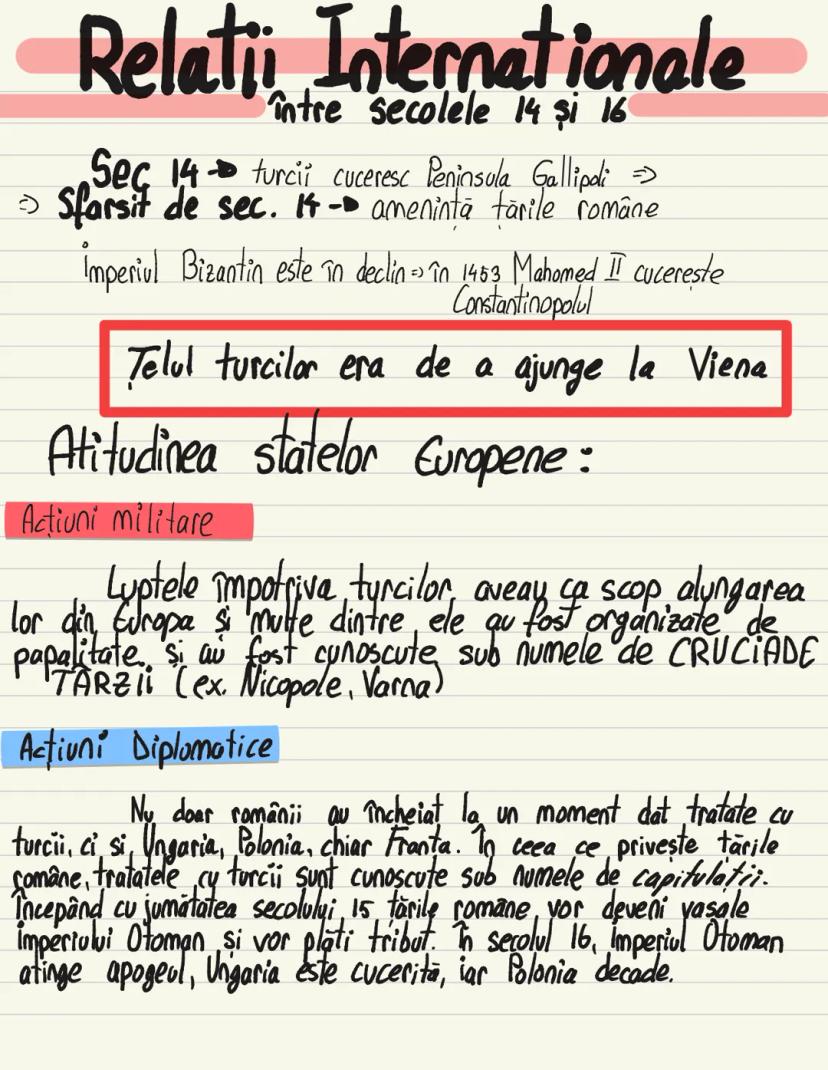 Relații Internationale
între secolele 14 și 16
Sec 14 → turcii cuceresc Peninsula Gallipoli ⇒
⇒ Sfarsit de sec. 14 → amenință țările române
Imperiul Bizantin este în declin ⇒ în 1453 Mahomed II cucerește
Constantinopolul
Țelul turcilor era de a ajunge la Viena
Atitudinea statelor Europene :
Acțiuni militare
Luptele împotriva turcilor aveau ca scop alungarea
lor din Europa și multe dintre ele au fost organizate de
papalitate și au fost cunoscute sub numele de CRUCIADE
TÂRZII (ex. Nicopole, Varna)
Acțiuni Diplomatice
Nu doar românii au încheiat la un moment dat tratate cu
turcii, ci și Ungaria, Polonia, chiar Franta. În ceea ce privește țările
române, tratatele cu turcii sunt cunoscute sub numele de capitulații.
Începând cu jumătatea secolului 15 țările române vor deveni vasale
Imperiului Otoman și vor plăti tribut. În secolul 16, Imperiul Otoman
atinge apogeul, Ungaria este cucerită, iar Polonia decade.